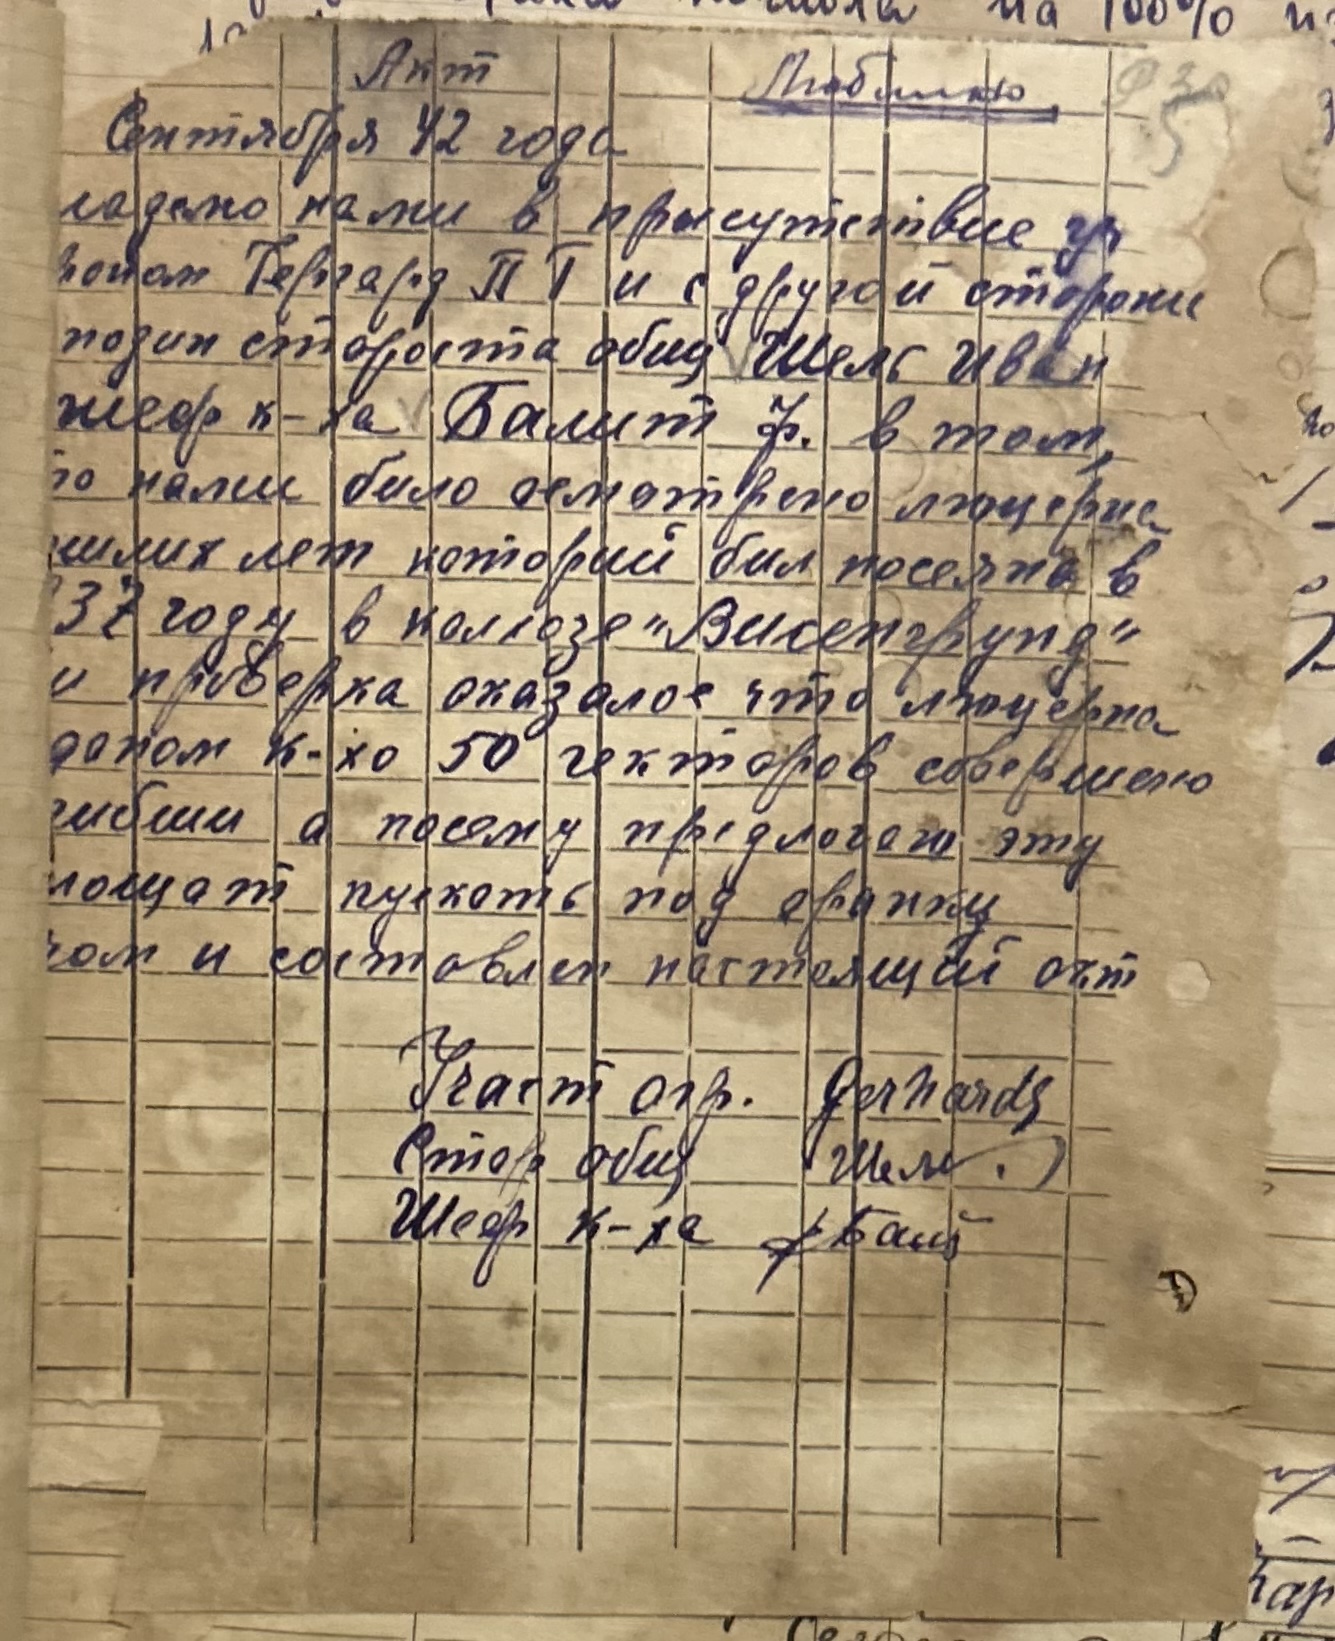 на 100% из
Акт Любимию
Сентября 42 года
ладено нами в присутствие уч
роном Гергард П Г и с другой сторони
подин староста общ Шель Иван
шеф к-ха Балит Ф. в том,
то нами било осмотрено люцерна
шлих лет который бил посеяна в
37 году в колхозе "Визенгрунд"
и проверка оказалос что люцерна
даном к-хо 50 гектаров совершено
гибши а посему предлогаю эту
лощат пускать под оранку
чом и составлен настоящий акт
Участ агр. Gerhards
Стар общ Шель
Шеф к-ха